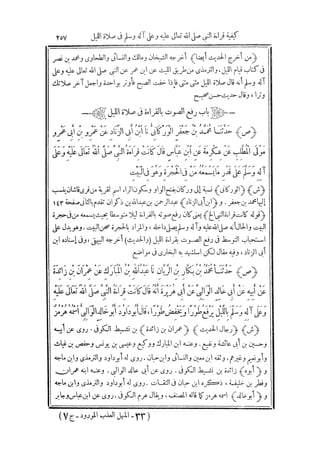 كيفية قراءة النبي صلى الله تعالى عليه وعلى آله وسلم في صلاة الليل ٢٥٧
﴿من أخرج الحديث أيضا﴾ أخرجه الشيخان ومالك والنسائي والطحاوي ومحمد بن نصر
في كتاب قيام الليل. والترمذي من طريق الليث عن ابن عمر عن النبي صلى الله تعالى عليه وعلى
آله وسلم أنه قال صلاة الليل مثنى مثنى فإذا خفت الصبح فأوتر بواحدة واجعل آخر صلاتك
وترا، وقال حديث حسن صحيح
باب رفع الصوت بالقراءة في صلاة الليل
﴿ص﴾ حَدَّثَنَا مُحَمَّدُ بْنُ جَعْفَرٍ الْوَرَكَانِيُّ نَا ابْنُ أَبِي الزِّنَادِ عَنْ عَمْرِو بْنِ أَبِي عَمْرٍو
مَوْلَى الْمُطَّلِبِ عَنْ عِكْرِمَةَ عَنِ ابْنِ عَبَّاسٍ قَالَ كَانَتْ قِرَاءَةُ النَّبِيِّ صَلَّى اللهُ تَعَالَى عَلَيْهِ وَعَلَى
آلِهِ وَسَلَّمَ عَلَى قَدْرِ مَا يَسْمَعُهُ مَنْ فِي الْحُجْرَةِ وَهُوَ فِي الْبَيْتِ
﴿ش﴾ ﴿الوركاني﴾ نسبة إلى وركان بفتح الواو وسكون الراء اسم لقرية من قرى قاشان ينسب
إليها محمد بن جعفر. و﴿ابن أبي الزناد﴾ عبد الرحمن بن عبد الله بن ذكوان تقدم بالثاني صفحة ١٤٣
﴿قوله كانت قراءة النبي الخ﴾ يعني كان رفع صوته بالقراءة ليلا متوسطا بحيث يسمعه من في حجرة
البيت والحال أنه صلى الله عليه وآله وسلم يصلي داخله، والمراد بالحجرة صحن البيت. وهو يدل على
استحباب التوسط في رفع الصوت بقراءة الليل ﴿والحديث﴾ أخرجه البيهقي، وفي إسناده ابن
أبي الزناد، وفيه مقال لكن استشهد به البخاري في مواضع
﴿ص﴾ حَدَّثَنَا مُحَمَّدُ بْنُ بَكَّارِ بْنِ الرَّيَّانِ نَا عَبْدُ اللهِ بْنُ الْمُبَارَكِ عَنْ عِمْرَانَ بْنِ زَائِدَةَ
عَنْ أَبِيهِ عَنْ أَبِي خَالِدٍ الْوَالِبِيِّ عَنْ أَبِي هُرَيْرَةَ أَنَّهُ قَالَ كَانَتْ قِرَاءَةُ النَّبِيِّ صَلَّى اللهُ تَعَالَى عَلَيْهِ
وَعَلَى آلِهِ وَسَلَّمَ بِاللَّيْلِ يَرْفَعُ طَوْرًا وَيَخْفِضُ طَوْرًا، قَالَ أَبُو دَاوُدَ أَبُو خَالِدٍ الْوَالِبِيُّ اسْمُهُ هُرْمُزُ
﴿ش﴾ ﴿رجال الحديث﴾ ﴿عمران بن زائدة﴾ بن نشيط الكوفي. روى عن أبيه
وحسين بن أبي عائشة ونفيع. وعنه ابن المبارك ووكيع وعيسى بن يونس وحفص بن غياث
وأبو نعيم وغيرهم، وثقه ابن معين والنسائي وابن حبان. روى له أبو داود والترمذي وابن ماجه
و﴿أبوه﴾ زائدة بن نشيط الكوفي. روى عن أبي خالد الوالبي. وعنه ابنه عمران
وفطر بن خليفة، ذكره ابن حبان في الثقات. روى له أبو داود والترمذي وابن ماجه
و﴿أبو خالد﴾ اسمه هرمز كما قاله المصنف، ويقال هرم الكوفي. روى عن ابن عباس وجابر
(٣٣ - المنهل العذب المورود - ج ٧)